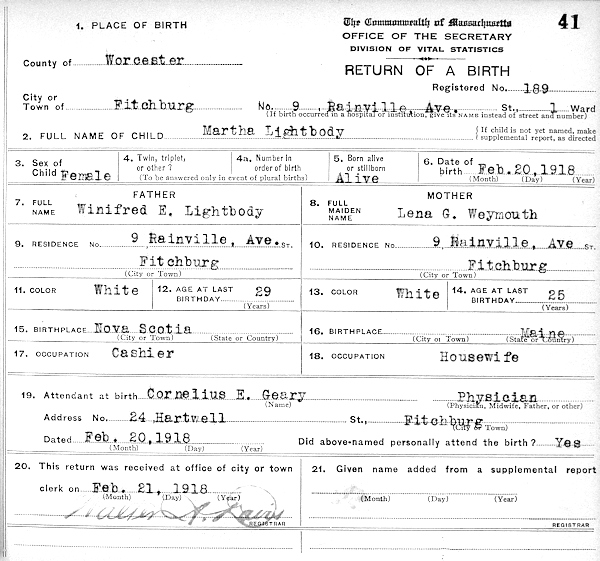 The Commonwealth of Massachusetts 41
1. PLACE OF BIRTH OFFICE OF THE SECRETARY
DIVISION OF VITAL STATISTICS
County of Worcester RETURN OF A BIRTH
Registered No. 189
City or
Town of Fitchburg No. 9 Rainville, Ave. St., 1 Ward
(If birth occurred in a hospital or institution, give its NAME instead of street and number)
2. FULL NAME OF CHILD Martha Lightbody { If child is not yet named, make
supplemental report, as directed
3. Sex of Child Female 4. Twin, triplet, or other? 4a. Number in order of birth 5. Born alive or stillborn Alive 6. Date of birth Feb.20,1918
(To be answered only in event of plural births) (Month) (Day) (Year)
FATHER MOTHER
7. FULL NAME Winifred E. Lightbody 8. FULL MAIDEN NAME Lena G. Weymouth
9. RESIDENCE No. 9 Rainville, Ave. ST. 10. RESIDENCE No. 9 Rainville, Ave ST.
Fitchburg Fitchburg
(City or Town) (City or Town)
11. COLOR White 12. AGE AT LAST BIRTHDAY 29 13. COLOR White 14. AGE AT LAST BIRTHDAY 25
(Years) (Years)
15. BIRTHPLACE Nova Scotia 16. BIRTHPLACE Maine
(City or Town) (State or Country) (City or Town) (State or Country)
17. OCCUPATION Cashier 18. OCCUPATION Housewife
19. Attendant at birth Cornelius E. Geary Physician
(Name) (Physician, Midwife, Father, or other)
Address No. 24 Hartwell St., Fitchburg
(City or Town)
Dated Feb. 20,1918 Did above-named personally attend the birth? Yes
(Month) (Day) (Year)
20. This return was received at office of city or town 21. Given name added from a supplemental report
clerk on Feb. 21, 1918
(Month) (Day) (Year) (Month) (Day) (Year)
Walter A. Davis
REGISTRAR REGISTRAR